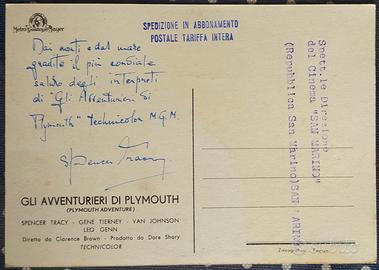 Metro-Goldwyn-Mayer
SPEDIZIONE IN ABBONAMENTO
POSTALE TARIFFA INTERA
Dai monti e dal mare
gradite il più cordiale
saluto degli interpreti
di "Gli Avventurieri di
Plymouth" technicolor M.G.M.
Spencer Tracy
GLI AVVENTURIERI DI PLYMOUTH
(PLYMOUTH ADVENTURE)
SPENCER TRACY - GENE TIERNEY - VAN JOHNSON
LEO GENN
Diretto da Clarence Brown - Prodotto da Dore Shary
TECHNICOLOR
Spett.le Direzione
del Cinema "SAN MARINO"
(Repubblica San Marino) SAN MARINO